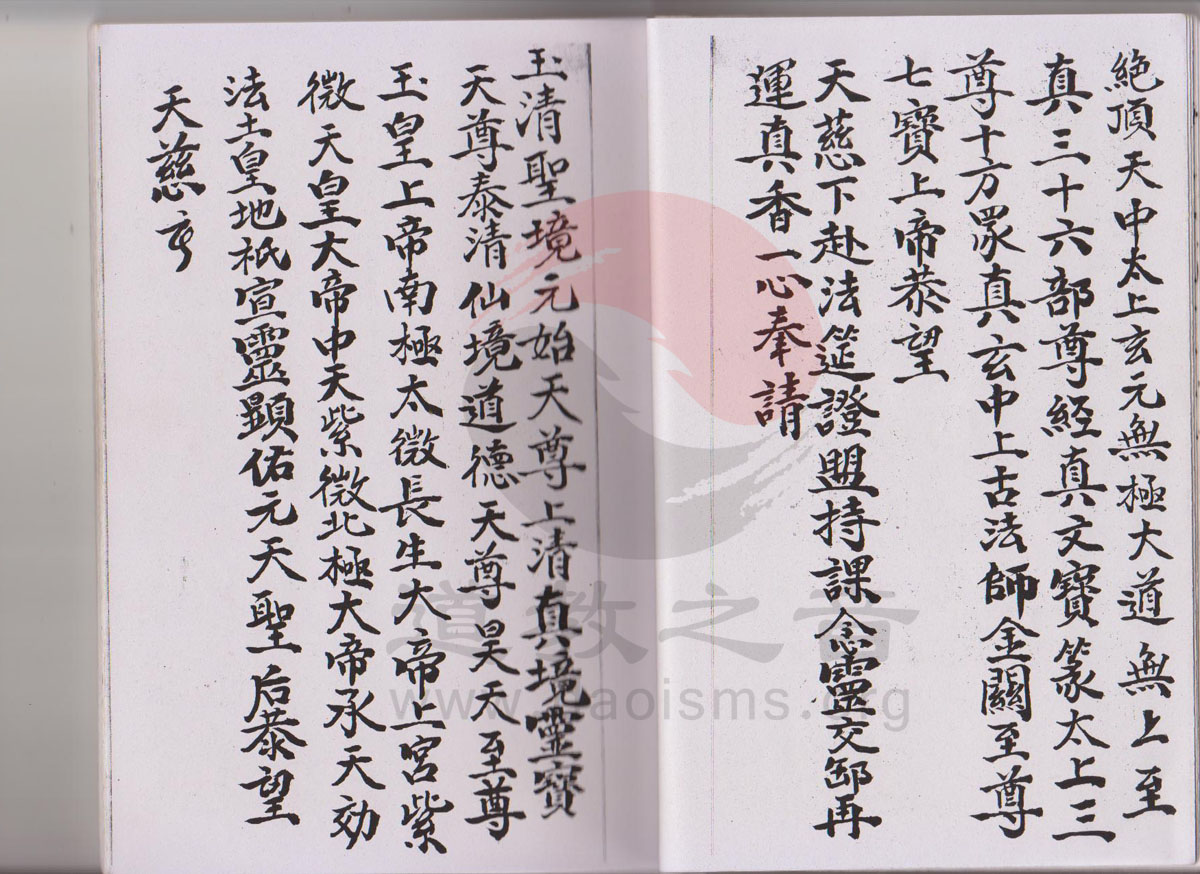 絕頂天中太上玄元無極大道無上至
真三十六部尊經真文寶篆太上三
尊十方眾真玄中上古法師金闕至尊
七寶上帝恭望
天慈下赴法筵證盟持課念靈文部再
運真香一心奉請
玉清聖境元始天尊上清真境靈寶
天尊泰清仙境道德天尊昊天至尊
玉皇上帝南極太微長生大帝上宮紫
微天皇大帝中天紫微北極大帝承天効
法土皇地祇宣靈顯佑元天聖后恭望
天慈
道教之音
www.daoisms.org